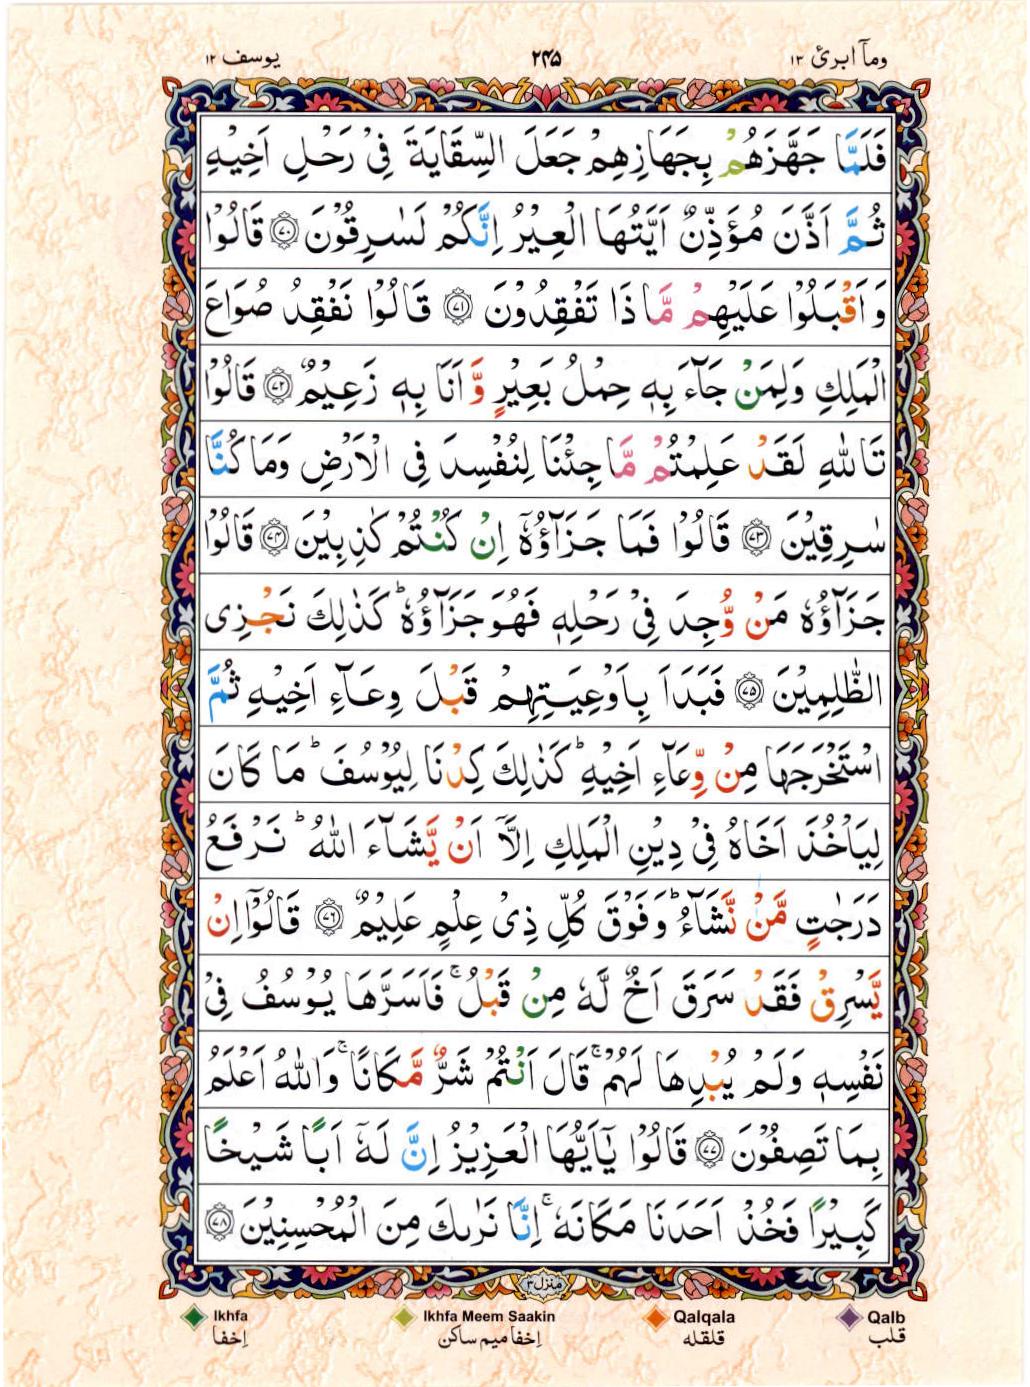 ومآ ابرئ ۱۳ ۲۴۵ یوسف ۱۲
فَلَمَّا جَهَّزَهُمْ بِجَهَازِهِمْ جَعَلَ السِّقَايَةَ فِىْ رَحْلِ اَخِيْهِ
ثُمَّ اَذَّنَ مُؤَذِّنٌ اَيَّتُهَا الْعِيْرُ اِنَّكُمْ لَسٰرِقُوْنَ ﴿۷۰﴾ قَالُوْا
وَاَقْبَلُوْا عَلَيْهِمْ مَّاذَا تَفْقِدُوْنَ ﴿۷۱﴾ قَالُوْا نَفْقِدُ صُوَاعَ
الْمَلِكِ وَلِمَنْ جَآءَ بِهٖ حِمْلُ بَعِيْرٍ وَّاَنَا بِهٖ زَعِيْمٌ ﴿۷۲﴾ قَالُوْا
تَاللّٰهِ لَقَدْ عَلِمْتُمْ مَّا جِئْنَا لِنُفْسِدَ فِى الْاَرْضِ وَمَا كُنَّا
سٰرِقِيْنَ ﴿۷۳﴾ قَالُوْا فَمَا جَزَآؤُهٗۤ اِنْ كُنْتُمْ كٰذِبِيْنَ ﴿۷۴﴾ قَالُوْا
جَزَآؤُهٗ مَنْ وُّجِدَ فِىْ رَحْلِهٖ فَهُوَ جَزَآؤُهٗ ؕ كَذٰلِكَ نَجْزِى
الظّٰلِمِيْنَ ﴿۷۵﴾ فَبَدَاَ بِاَوْعِيَتِهِمْ قَبْلَ وِعَآءِ اَخِيْهِ ثُمَّ
اسْتَخْرَجَهَا مِنْ وِّعَآءِ اَخِيْهِ ؕ كَذٰلِكَ كِدْنَا لِيُوْسُفَ ؕ مَا كَانَ
لِيَاْخُذَ اَخَاهُ فِىْ دِيْنِ الْمَلِكِ اِلَّاۤ اَنْ يَّشَآءَ اللّٰهُ ؕ نَرْفَعُ
دَرَجٰتٍ مَّنْ نَّشَآءُ ؕ وَفَوْقَ كُلِّ ذِىْ عِلْمٍ عَلِيْمٌ ﴿۷۶﴾ قَالُوْۤا اِنْ
يَّسْرِقْ فَقَدْ سَرَقَ اَخٌ لَّهٗ مِنْ قَبْلُ ۚ فَاَسَرَّهَا يُوْسُفُ فِىْ
نَفْسِهٖ وَلَمْ يُبْدِهَا لَهُمْ ۚ قَالَ اَنْتُمْ شَرٌّ مَّكَانًا ۚ وَاللّٰهُ اَعْلَمُ
بِمَا تَصِفُوْنَ ﴿۷۷﴾ قَالُوْا يٰۤاَيُّهَا الْعَزِيْزُ اِنَّ لَهٗۤ اَبًا شَيْخًا
كَبِيْرًا فَخُذْ اَحَدَنَا مَكَانَهٗ ۚ اِنَّا نَرٰىكَ مِنَ الْمُحْسِنِيْنَ ﴿۷۸﴾
منزل ۳
Ikhfa Ikhfa Meem Saakin Qalqala Qalb
اِخفا اِخفا میم ساکن قلقله قلب